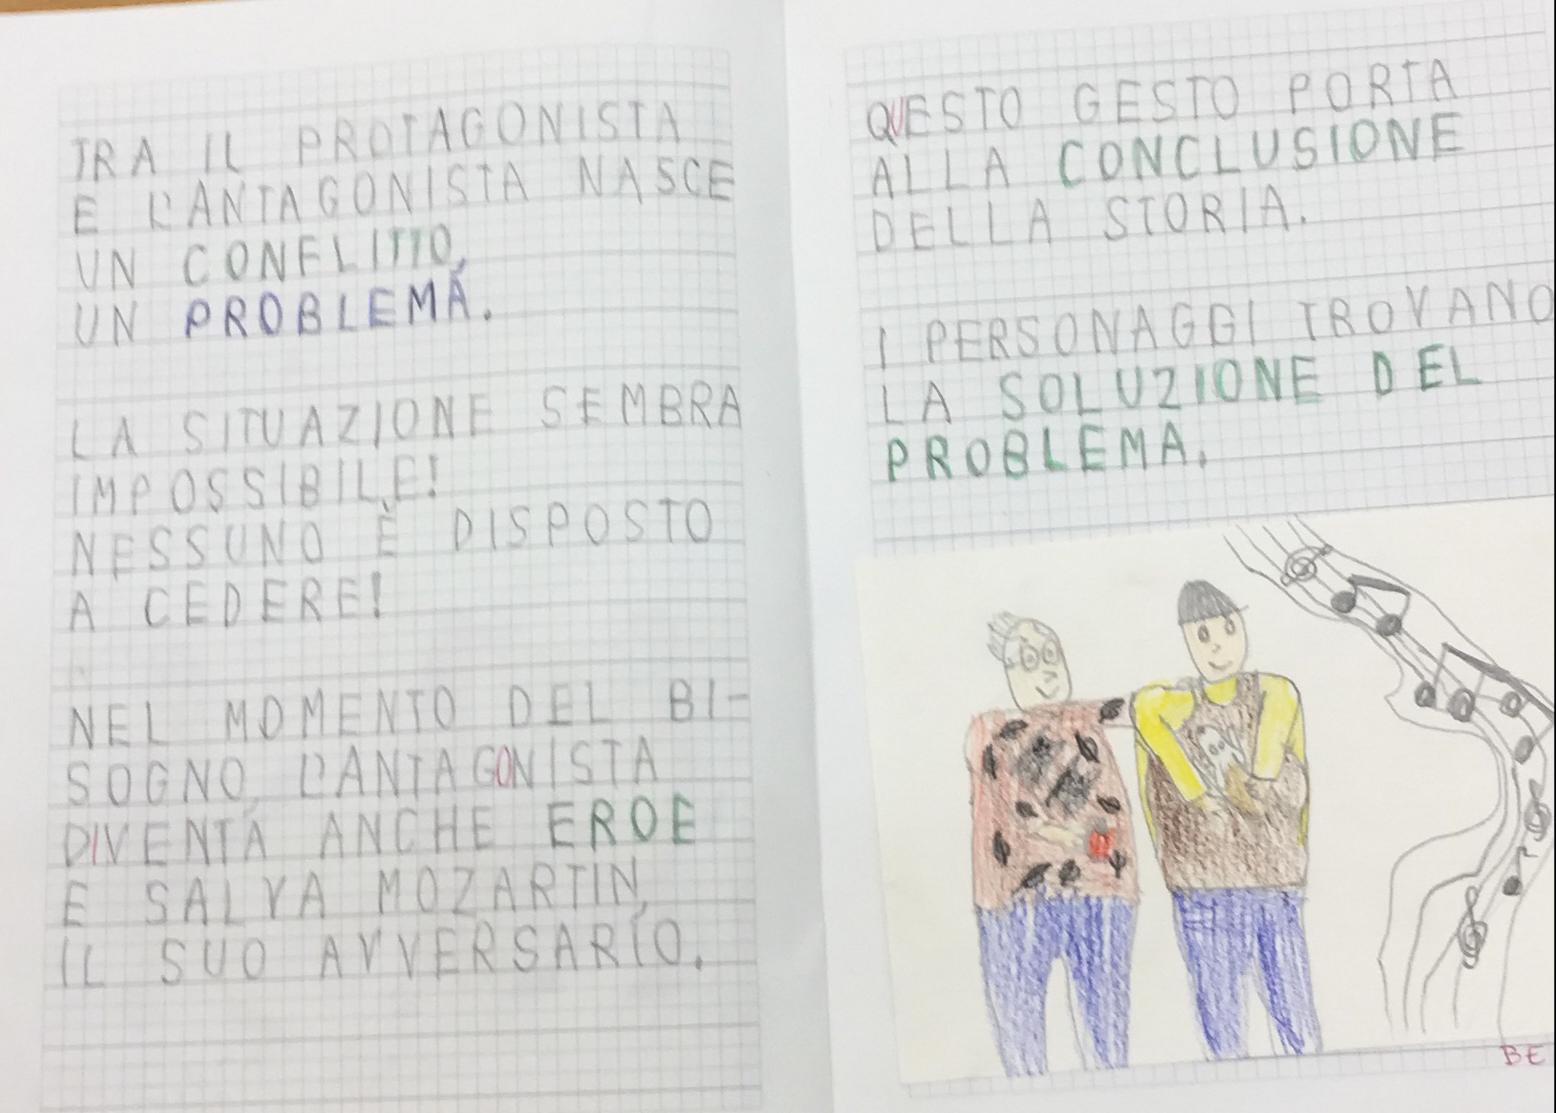 TRA IL PROTAGONISTA
E L'ANTAGONISTA NASCE
UN CONFLITTO,
UN PROBLEMA.
LA SITUAZIONE SEMBRA
IMPOSSIBILE!
NESSUNO È DISPOSTO
A CEDERE!
NEL MOMENTO DEL BI-
SOGNO, L'ANTAGONISTA
DIVENTA ANCHE EROE
E SALVA MOZARTIN,
IL SUO AVVERSARIO.
QUESTO GESTO PORTA
ALLA CONCLUSIONE
DELLA STORIA.
I PERSONAGGI TROVANO
LA SOLUZIONE DEL
PROBLEMA.
BE